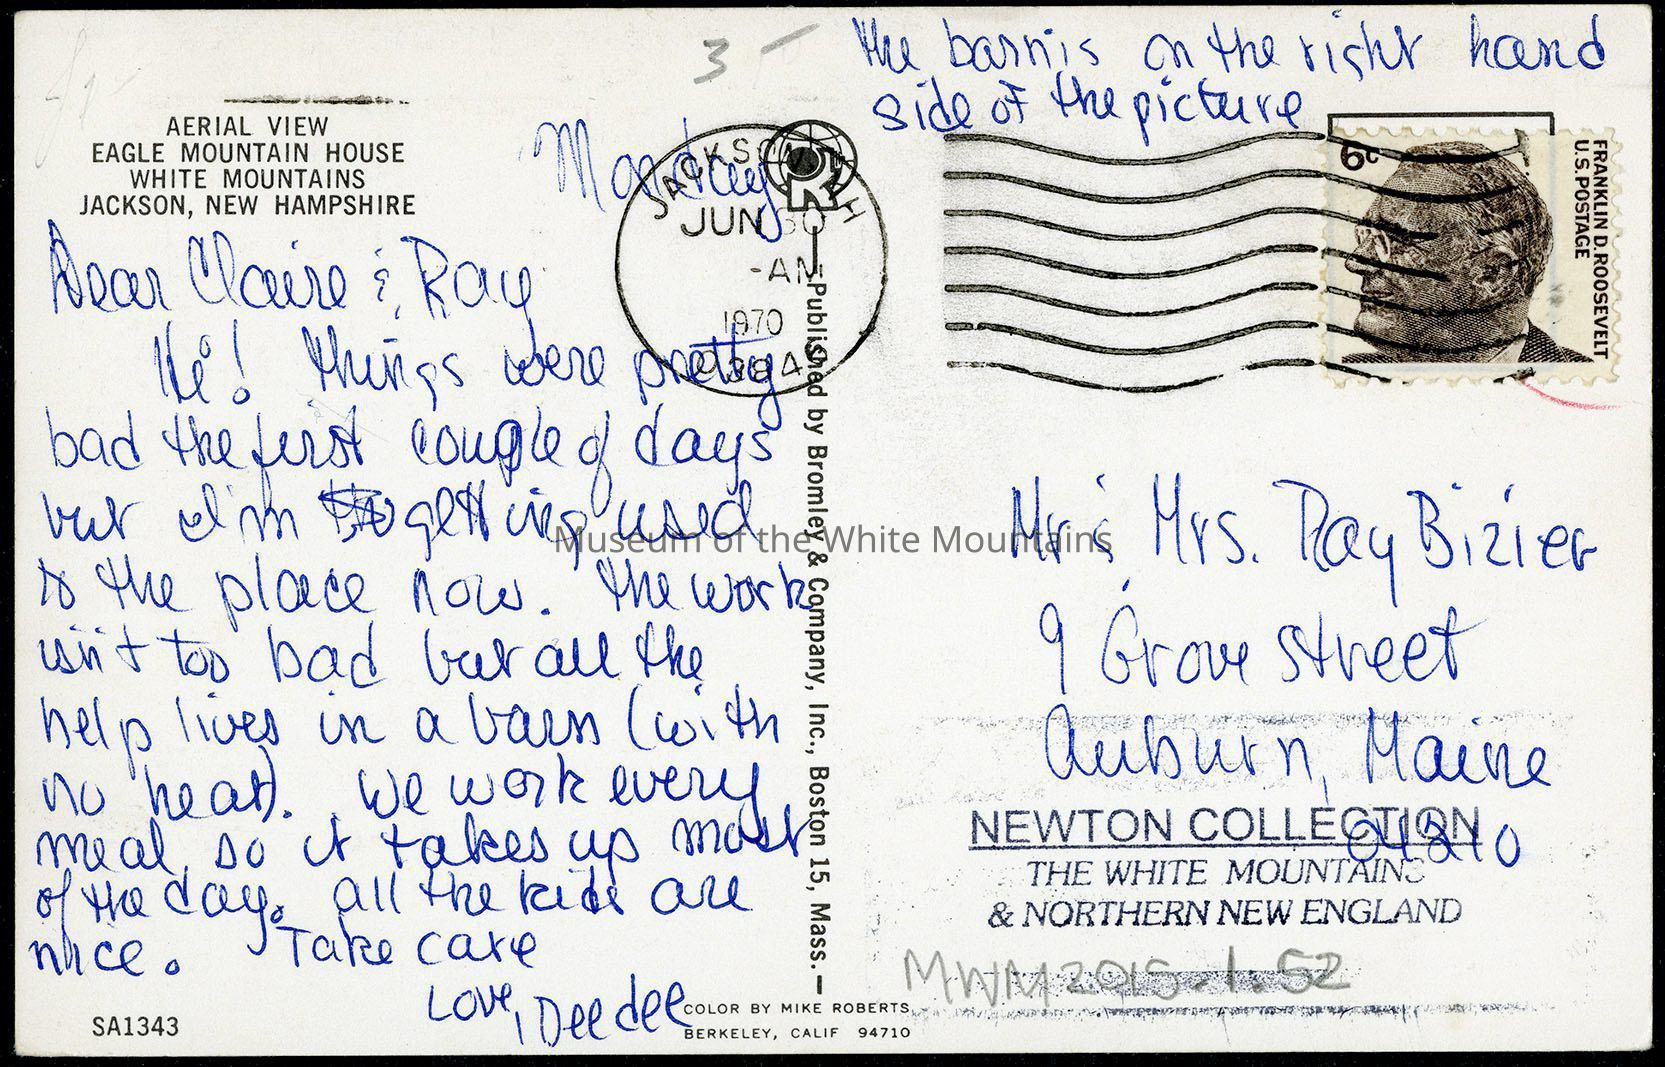 the barn is on the right hand
side of the picture
3
AERIAL VIEW
EAGLE MOUNTAIN HOUSE
WHITE MOUNTAINS
JACKSON, NEW HAMPSHIRE
Monday
JACKSON
JUN 30
-AM
1970
03846
6c
FRANKLIN D. ROOSEVELT
U.S. POSTAGE
Dear Claire & Ray
Hi! Things were pretty
bad the first couple of days
but I'm getting used
to the place now. The work
isn't too bad but all the
help lives in a barn (with
no heat). We work every
meal so it takes up most
of the day. All the kids are
nice. Take care
Love, Dee dee
Published by Bromley & Company, Inc., Boston 15, Mass.
Mr & Mrs. Ray Bizier
9 Grove Street
Auburn, Maine
04210
NEWTON COLLECTION
THE WHITE MOUNTAINS
& NORTHERN NEW ENGLAND
MWM2015.1.52
SA1343
COLOR BY MIKE ROBERTS
BERKELEY, CALIF 94710
Museum of the White Mountains